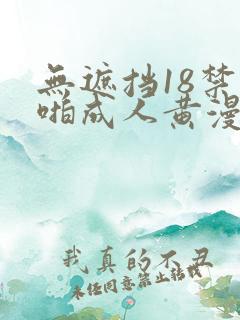 無遮挡18禁
啪成人黄漫
我真的不丑
未经同意禁止转载